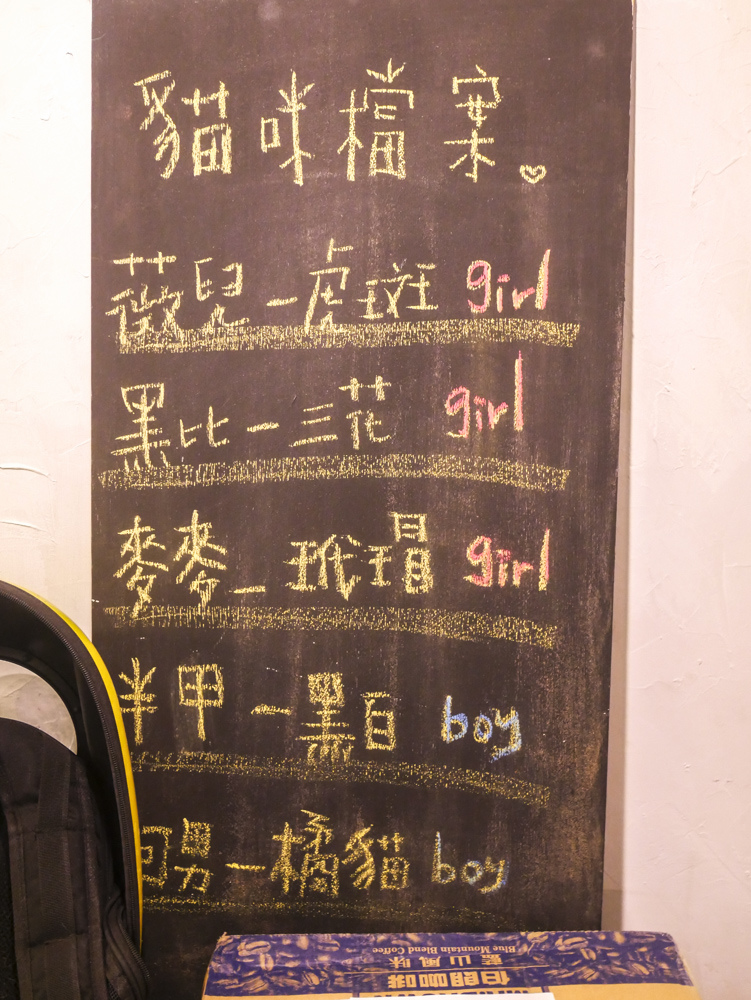 貓咪檔案♡
薇兒-虎斑 girl
黑比-三花 girl
麥麥-玳瑁 girl
半甲-黑白 boy
男-橘貓 boy
伯朗咖啡
藍山風味
Blue Mountain Blend Coffee